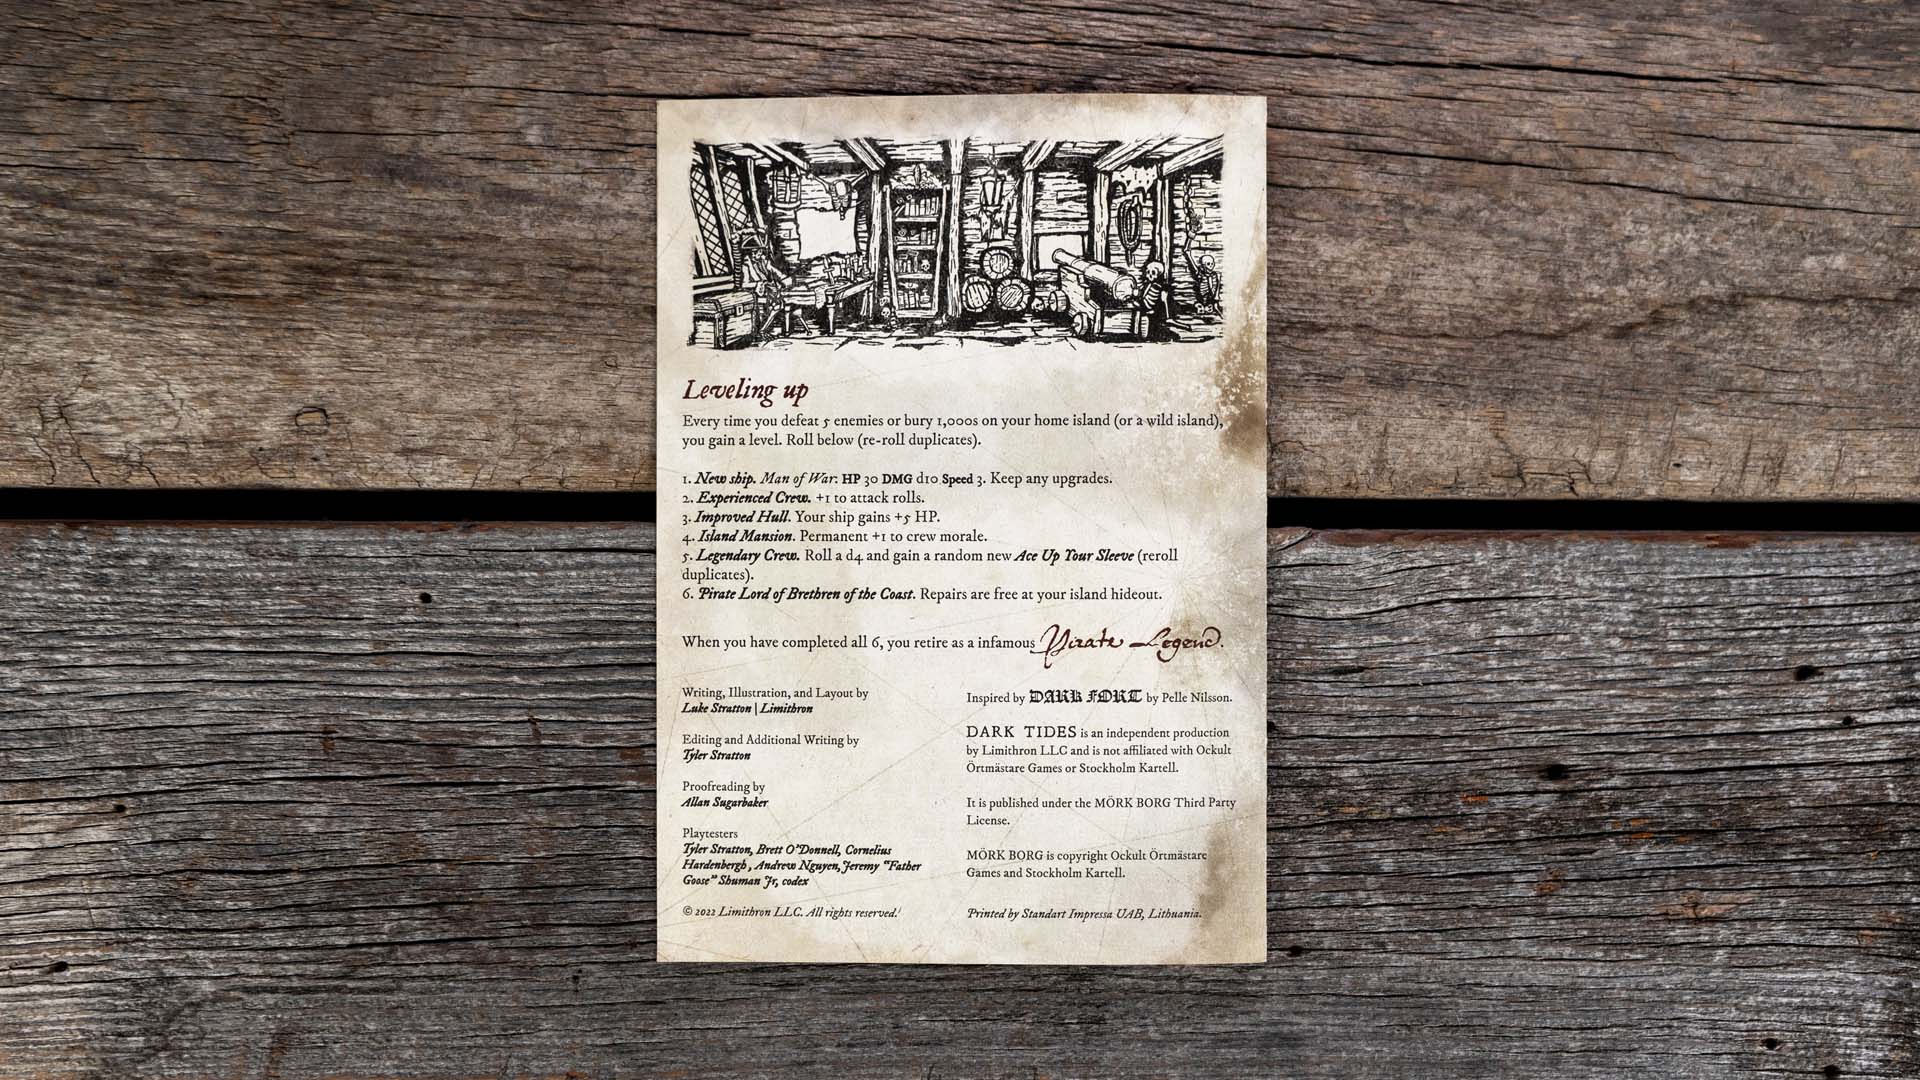 Leveling up
Every time you defeat 5 enemies or bury 1,000s on your home island (or a wild island),
you gain a level. Roll below (re-roll duplicates).
1. New ship. Man of War: HP 30 DMG d10 Speed 3. Keep any upgrades.
2. Experienced Crew. +1 to attack rolls.
3. Improved Hull. Your ship gains +5 HP.
4. Island Mansion. Permanent +1 to crew morale.
5. Legendary Crew. Roll a d4 and gain a random new Ace Up Your Sleeve (reroll
duplicates).
6. Pirate Lord of Brethren of the Coast. Repairs are free at your island hideout.
When you have completed all 6, you retire as a infamous Pirate Legend.
Writing, Illustration, and Layout by
Luke Stratton | Limithron
Editing and Additional Writing by
Tyler Stratton
Proofreading by
Allan Sugarbaker
Playtesters
Tyler Stratton, Brett O'Donnell, Cornelius
Hardenbergh, Andrew Nguyen, Jeremy "Father
Goose" Shuman Jr, codex
© 2022 Limithron LLC. All rights reserved.
Inspired by DARK FORT by Pelle Nilsson.
DARK TIDES is an independent production
by Limithron LLC and is not affiliated with Ockult
Örtmästare Games or Stockholm Kartell.
It is published under the MÖRK BORG Third Party
License.
MÖRK BORG is copyright Ockult Örtmästare
Games and Stockholm Kartell.
Printed by Standart Impressa UAB, Lithuania.